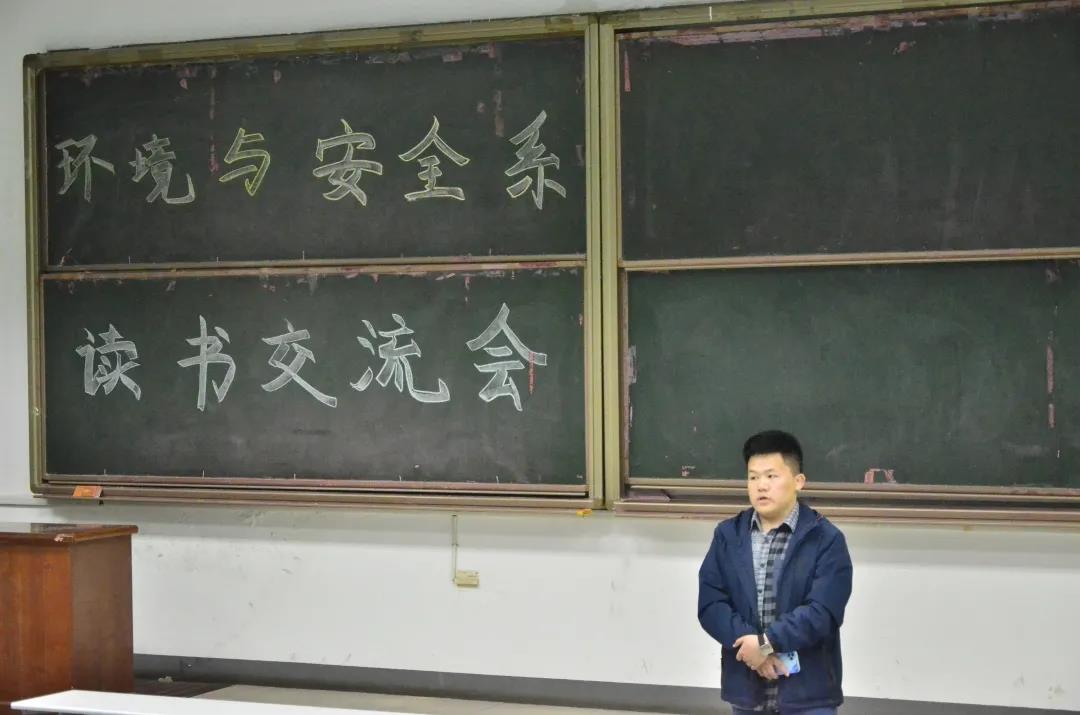 环境与安全系
读书交流会